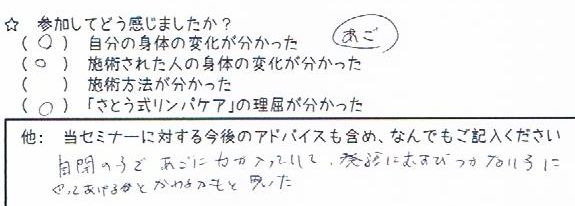 ☆ 参加してどう感じましたか？
あご
(○) 自分の身体の変化が分かった
(○) 施術された人の身体の変化が分かった
( ) 施術方法が分かった
(○) 「さとう式リンパケア」の理屈が分かった
他: 当セミナーに対する今後のアドバイスも含め、なんでもご記入ください
自閉の子で あごに力が入っていて、発語にむすびつかない子に
やってあげると かわるかもと思った